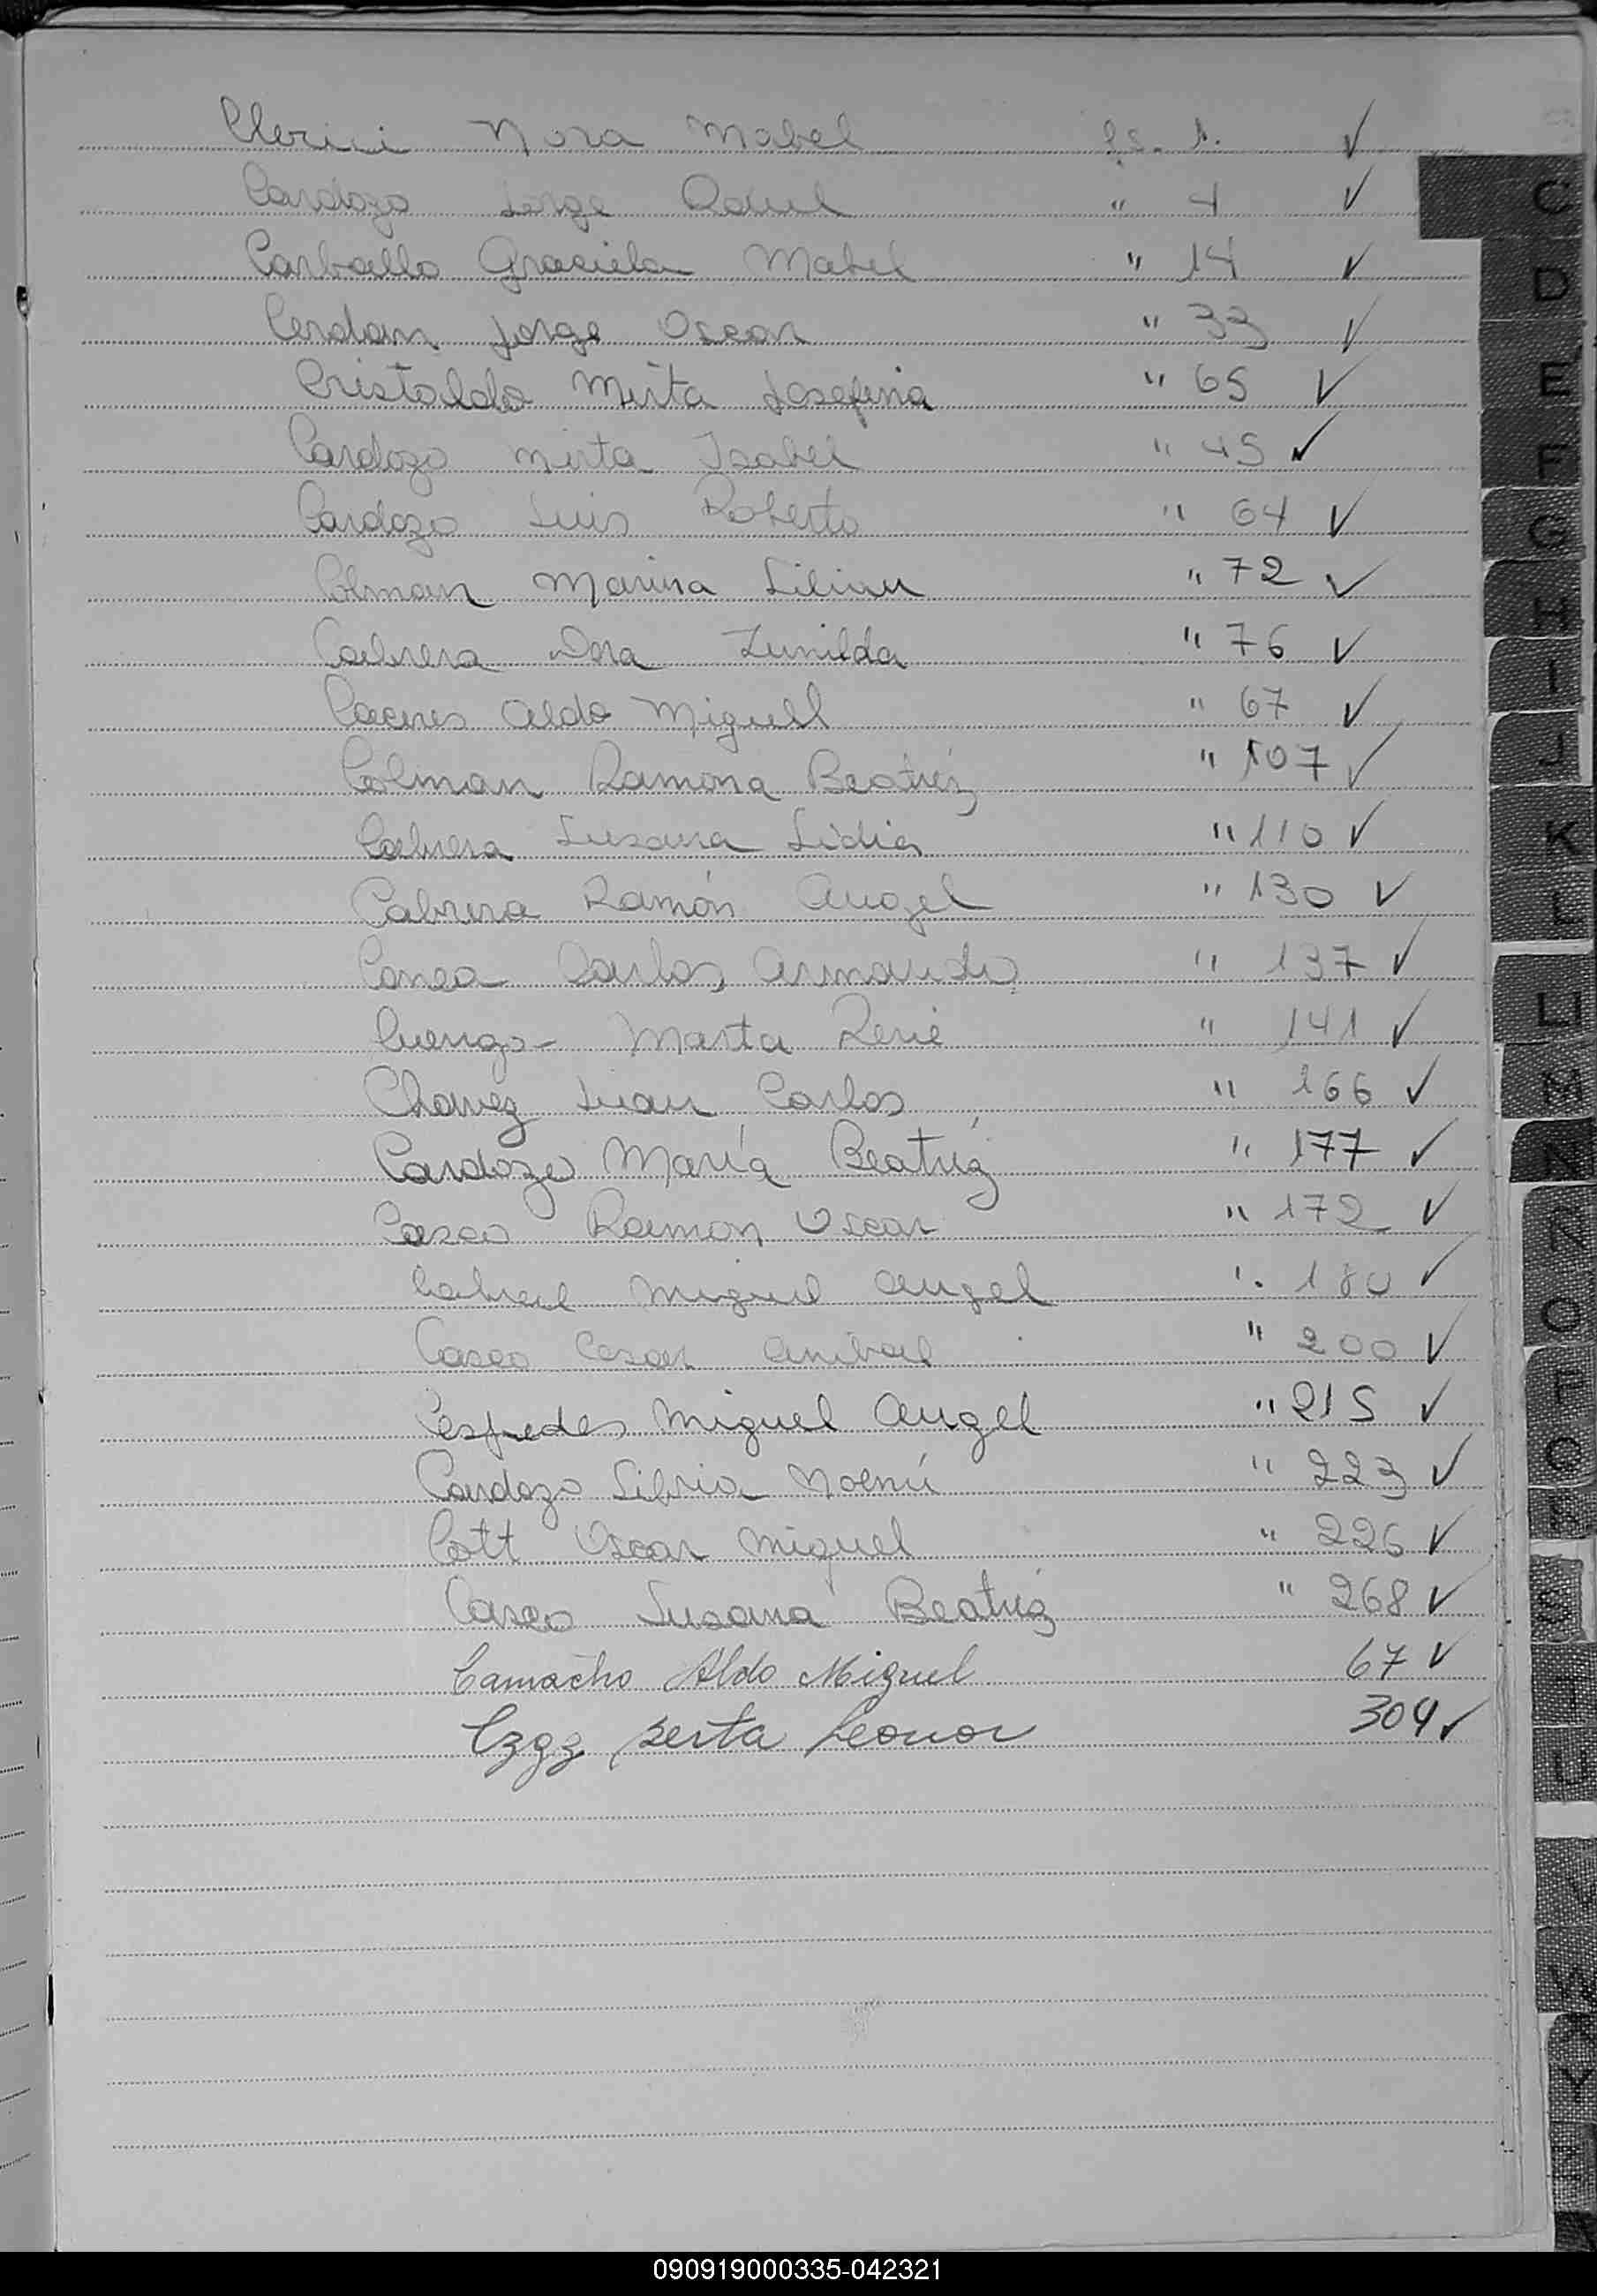 Clerici Nora Mabel fs. 1. ✓
Cardozo Jorge Raul " 4 ✓
Carballo Graciela Mabel " 14 ✓
Cerdan Jorge Oscar " 33 ✓
Cristaldo Mirta Josefina " 65 ✓
Cardozo Mirta Isabel " 45 ✓
Cardozo Luis Roberto " 64 ✓
Colman Marina Lilian " 72 ✓
Cabrera Dora Zunilda " 76 ✓
Caceres Aldo Miguel " 67 ✓
Colman Ramona Beatriz " 107 ✓
Cabrera Susana Lidia " 110 ✓
Cabrera Ramón Angel " 130 ✓
Carlos Armando " 137 ✓
Marta René " 141 ✓
Chavez Juan Carlos " 166 ✓
Cardozo María Beatriz " 177 ✓
Casco Ramon Oscar " 172 ✓
Cabral Miguel Angel " 180 ✓
Casco Cesar Anibal " 200 ✓
Cespedes Miguel Angel " 215 ✓
Cardozo Silvia Noemí " 223 ✓
Cott Oscar Miguel " 226 ✓
Casco Susana Beatriz " 268 ✓
Camacho Aldo Miguel 67 ✓
Leonor 304 ✓
C
D
E
F
G
H
I
J
K
L
LL
M
N
Ñ
O
P
Q
R
S
T
U
V
W
X
Y
090919000335-042321